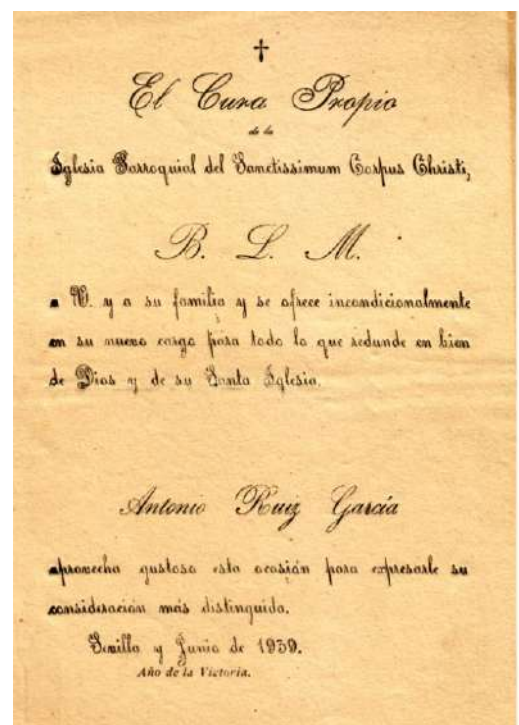 †
El Cura Propio
de la
Iglesia Parroquial del Sanctissimum Corpus Christi,
B. L. M.
a V. y a su familia y se ofrece incondicionalmente
en su nuevo cargo para todo lo que redunde en bien
de Dios y de su Santa Iglesia.
Antonio Ruiz García
aprovecha gustoso esta ocasión para expresarle su
consideración más distinguida.
Sevilla y Junio de 1939.
Año de la Victoria.